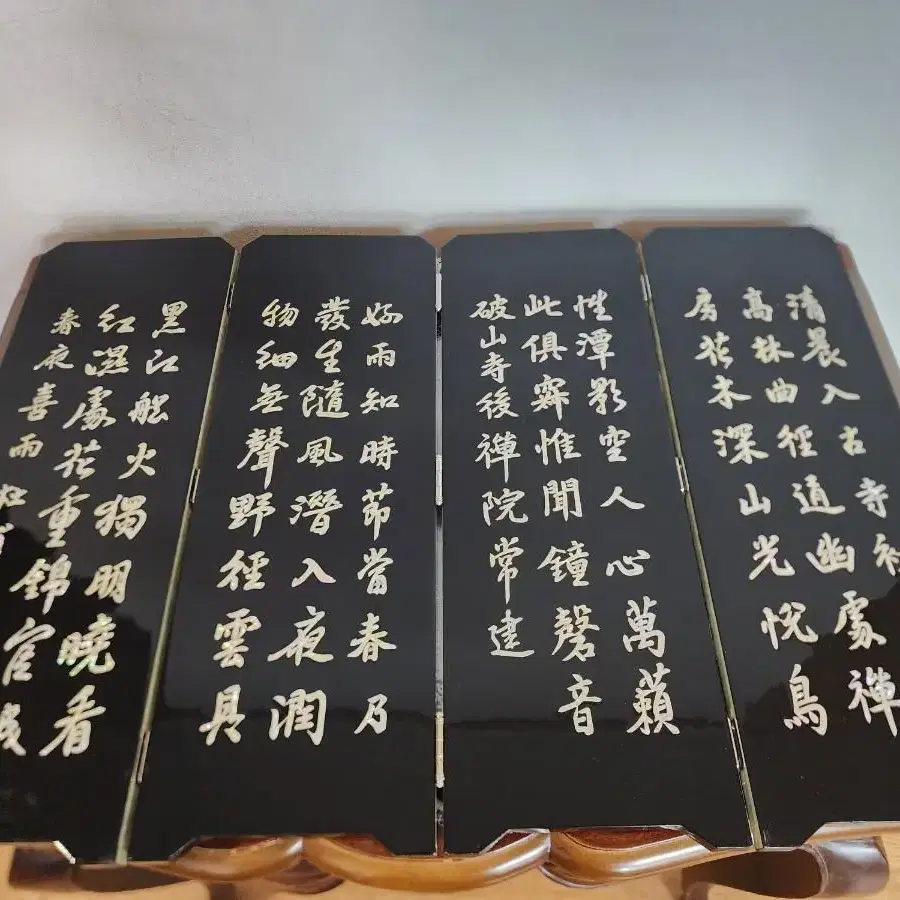 清晨入古寺初
高林曲徑通幽處禪
房花木深山光悅鳥
性潭影空人心萬籟
此俱寂惟聞鐘磬音
破山寺後禪院常建
好雨知時節當春乃
發生隨風潛入夜潤
物細無聲野徑雲具
黑江船火獨明曉看
紅濕處花重錦官城
春夜喜雨杜